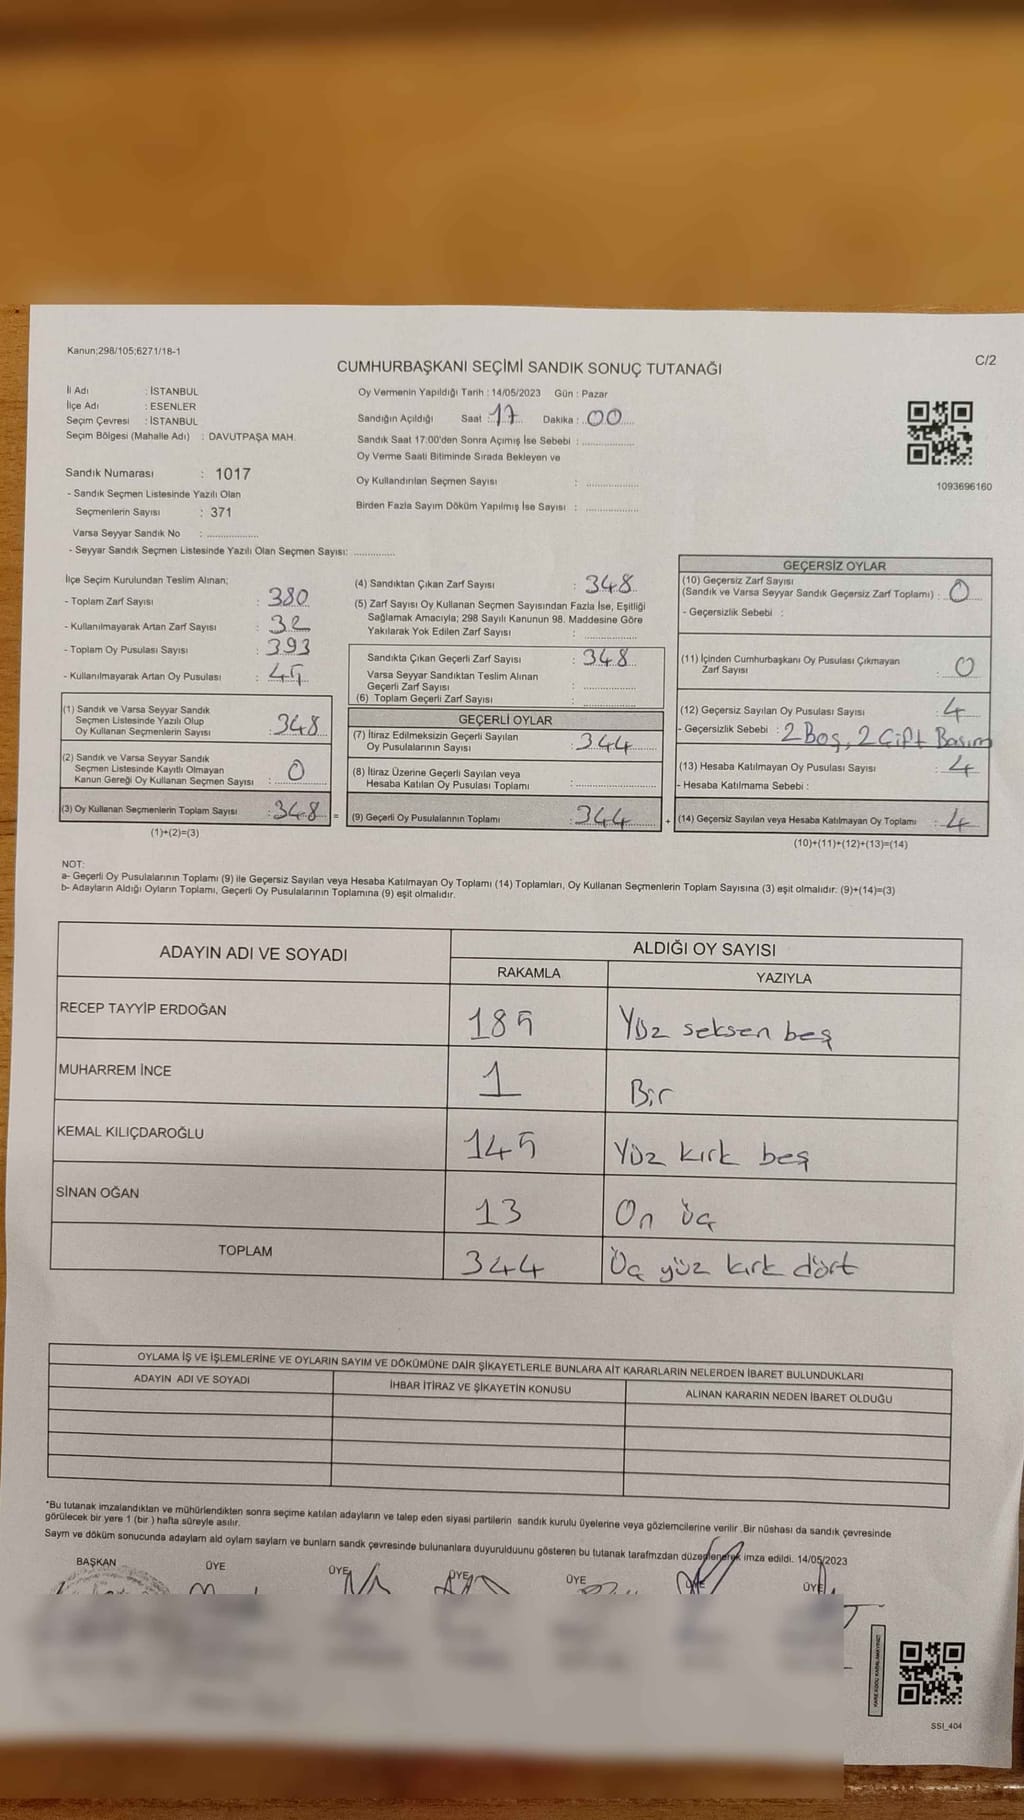 Kanun;298/105;6271/18-1
C/2
CUMHURBAŞKANI SEÇİMİ SANDIK SONUÇ TUTANAĞI
İl Adı : İSTANBUL
İlçe Adı : ESENLER
Seçim Çevresi : İSTANBUL
Seçim Bölgesi (Mahalle Adı) : DAVUTPAŞA MAH.
Sandık Numarası : 1017
- Sandık Seçmen Listesinde Yazılı Olan
Seçmenlerin Sayısı : 371
Varsa Seyyar Sandık No : ...............
- Seyyar Sandık Seçmen Listesinde Yazılı Olan Seçmen Sayısı: ............
Oy Vermenin Yapıldığı Tarih : 14/05/2023 Gün : Pazar
Sandığın Açıldığı Saat : 17 Dakika : 00
Sandık Saat 17:00'den Sonra Açımış İse Sebebi : ...............
Oy Verme Saati Bitiminde Sırada Bekleyen ve
Oy Kullandırılan Seçmen Sayısı : ...............
Birden Fazla Sayım Döküm Yapılmış İse Sayısı : ...............
1093696160
İlçe Seçim Kurulundan Teslim Alınan;
- Toplam Zarf Sayısı : 380
- Kullanılmayarak Artan Zarf Sayısı : 32
- Toplam Oy Pusulası Sayısı : 393
- Kullanılmayarak Artan Oy Pusulası : 45
(1) Sandık ve Varsa Seyyar Sandık
Seçmen Listesinde Yazılı Olup
Oy Kullanan Seçmenlerin Sayısı : 348
(2) Sandık ve Varsa Seyyar Sandık
Seçmen Listesinde Kayıtlı Olmayan
Kanun Gereği Oy Kullanan Seçmen Sayısı : 0
(3) Oy Kullanan Seçmenlerin Toplam Sayısı : 348 =
(1)+(2)=(3)
(4) Sandıktan Çıkan Zarf Sayısı : 348
(5) Zarf Sayısı Oy Kullanan Seçmen Sayısından Fazla İse, Eşitliği
Sağlamak Amacıyla; 298 Sayılı Kanunun 98. Maddesine Göre
Yakılarak Yok Edilen Zarf Sayısı : ...............
Sandıkta Çıkan Geçerli Zarf Sayısı : 348
Varsa Seyyar Sandıktan Teslim Alınan
Geçerli Zarf Sayısı : ...............
(6) Toplam Geçerli Zarf Sayısı : ...............
GEÇERLİ OYLAR
(7) İtiraz Edilmeksizin Geçerli Sayılan
Oy Pusulalarının Sayısı : 344
(8) İtiraz Üzerine Geçerli Sayılan veya
Hesaba Katılan Oy Pusulası Toplamı : ...............
(9) Geçerli Oy Pusulalarının Toplamı : 344 +
GEÇERSİZ OYLAR
(10) Geçersiz Zarf Sayısı
(Sandık ve Varsa Seyyar Sandık Geçersiz Zarf Toplamı) : 0
- Geçersizlik Sebebi :
(11) İçinden Cumhurbaşkanı Oy Pusulası Çıkmayan
Zarf Sayısı : 0
(12) Geçersiz Sayılan Oy Pusulası Sayısı : 4
- Geçersizlik Sebebi : 2 Boş, 2 Çift Basım
(13) Hesaba Katılmayan Oy Pusulası Sayısı : 4
- Hesaba Katılmama Sebebi :
(14) Geçersiz Sayılan veya Hesaba Katılmayan Oy Toplamı : 4
(10)+(11)+(12)+(13)=(14)
NOT:
a- Geçerli Oy Pusulalarının Toplamı (9) ile Geçersiz Sayılan veya Hesaba Katılmayan Oy Toplamı (14) Toplamları, Oy Kullanan Seçmenlerin Toplam Sayısına (3) eşit olmalıdır. (9)+(14)=(3)
b- Adayların Aldığı Oyların Toplamı, Geçerli Oy Pusulalarının Toplamına (9) eşit olmalıdır.
ADAYIN ADI VE SOYADI
ALDIĞI OY SAYISI
RAKAMLA YAZIYLA
RECEP TAYYİP ERDOĞAN 185 Yüz seksen beş
MUHARREM İNCE 1 Bir
KEMAL KILIÇDAROĞLU 145 Yüz kırk beş
SİNAN OĞAN 13 On üç
TOPLAM 344 Üç yüz kırk dört
OYLAMA İŞ VE İŞLEMLERİNE VE OYLARIN SAYIM VE DÖKÜMÜNE DAİR ŞİKAYETLERLE BUNLARA AİT KARARLARIN NELERDEN İBARET BULUNDUKLARI
ADAYIN ADI VE SOYADI İHBAR İTİRAZ VE ŞİKAYETİN KONUSU ALINAN KARARIN NEDEN İBARET OLDUĞU
*Bu tutanak imzalandıktan ve mühürlendikten sonra seçime katılan adayların ve talep eden siyasi partilerin sandık kurulu üyelerine veya gözlemcilerine verilir .Bir nüshası da sandık çevresinde
görülecek bir yere 1 (bir ) hafta süreyle asılır.
Saym ve döküm sonucunda adaylarn ald oylarn saylarn ve bunlarn sandk çevresinde bulunanlara duyurulduunu gösteren bu tutanak tarafmzdan düzenlenerek imza edildi. 14/05/2023
BAŞKAN ÜYE ÜYE ÜYE ÜYE ÜYE ÜYE
SSİ_404